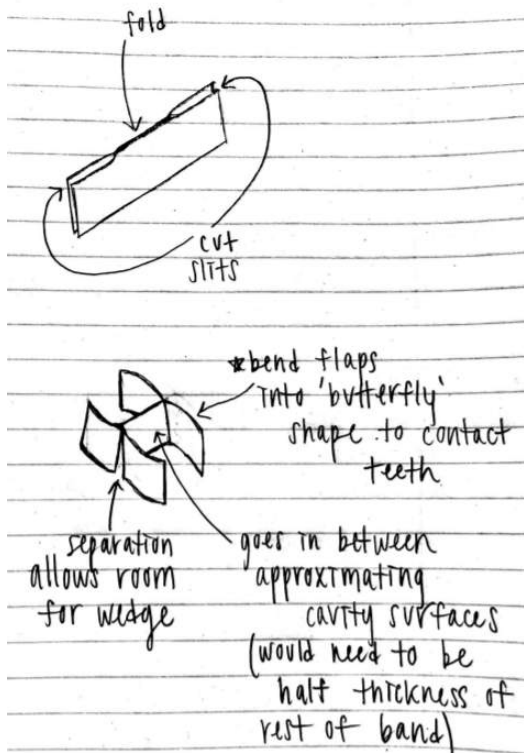 fold
cut
slits
*bend flaps
into 'butterfly'
shape to contact
teeth
separation
allows room
for wedge
goes in between
approximating
cavity surfaces
(would need to be
half thickness of
rest of band)